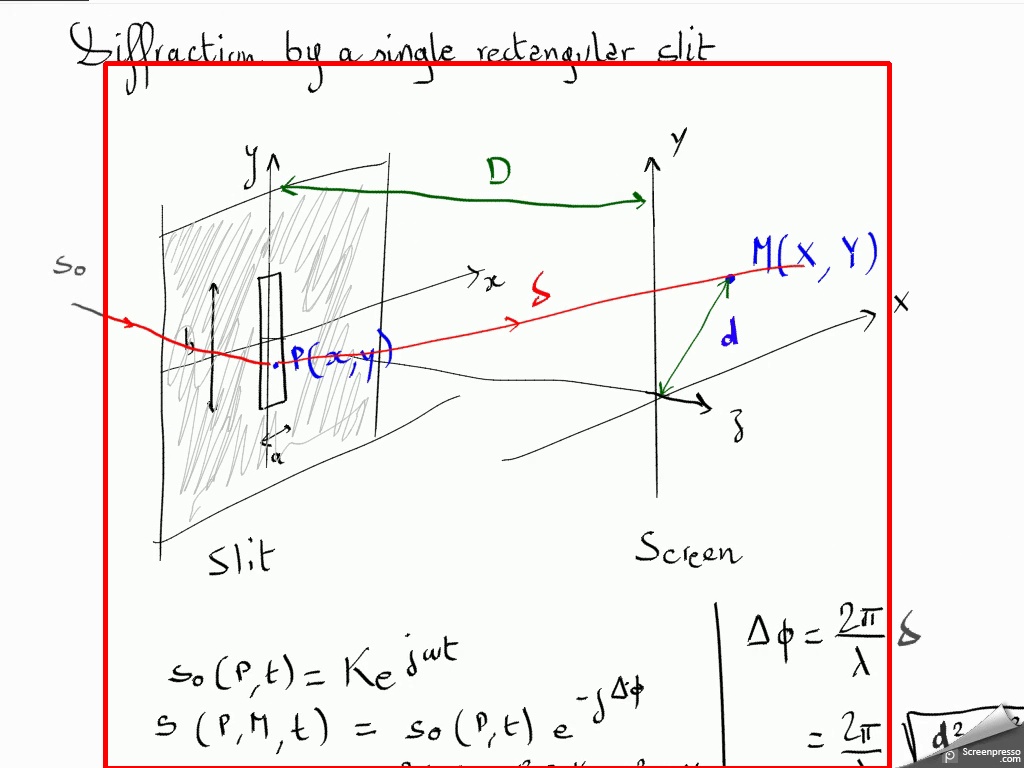 Diffraction by a single rectangular slit
y
D
Y
M(X, Y)
so
x
δ
X
b
P(x,y)
d
z
a
Slit
Screen
so(P,t) = Ke^jωt
Δϕ = 2π/λ δ
s(P,M,t) = so(P,t) e^-jΔϕ
= 2π/λ √d²
Screenpresso
.com